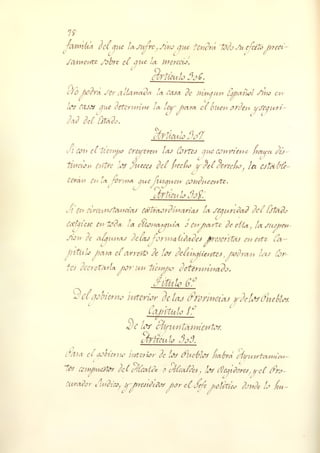 75
familia del que la sufre, sino que tendrá todo su efecto preci-
samente sobre el que la mereció.
Artículo 306.
No podrá ser allanada la casa de ningun Español sino en
los casos que determine la ley para el buen orden y seguri-
dad del Estado.
Artículo 307.
Si con el tiempo creyeren las Cortes que conviene haya dis-
tincion entre los Jueces del hecho y del derecho, la estable-
cerán en la forma que juzguen conducente.
Artículo 308.
Si en circunstancias extraordinarias la seguridad del Estado
exigiese en toda la Monarquía ó en parte de ella, la suspen-
sion de algunas de las formalidades prescritas en este Ca-
pítulo para el arresto de los delinqüentes, podrán las Cor-
tes decretarla por un tiempo determinado.
Título 6.º
Del gobierno interior de las Provincias y de los Pueblos.
Capítulo 1.º
De los Ayuntamientos.
Artículo 309.
Para el gobierno interior de los Pueblos habrá Ayuntamien-
tos compuestos del Alcalde ó Alcaldes, los Regidores, y el Pro-
curador Síndico, y presididos por el Gefe político donde lo hu-